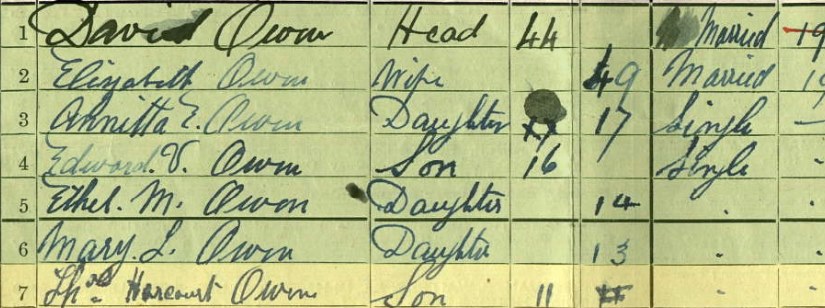 1 David Owen Head 44 Married 19
2 Elizabeth Owen Wife 49 Married 19
3 Annitta E. Owen Daughter 17 Single –
4 Edward. V. Owen Son 16 Single .
5 Ethel. M. Owen Daughter 14 . .
6 Mary. L. Owen Daughter 13 . .
7 Thos Harcourt Owen Son 11 . .